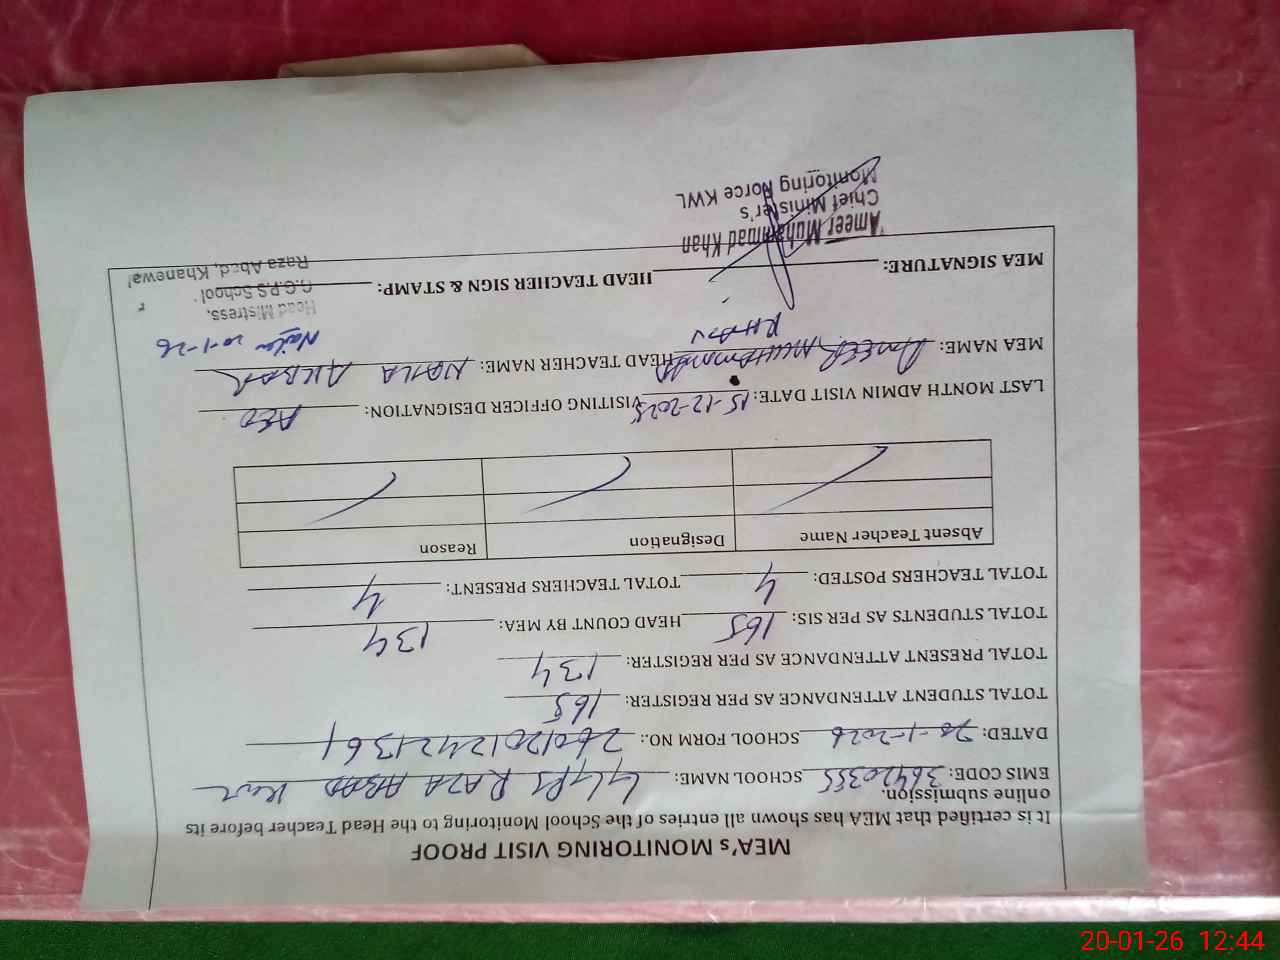 MEA's MONITORING VISIT PROOF
It is certified that MEA has shown all entries of the School Monitoring to the Head Teacher before its
online submission.
EMIS CODE: 36420355 SCHOOL NAME: GGPS RAZA ABAD KWL
DATED: 20-1-2026 SCHOOL FORM NO.: 260120124213 64
TOTAL STUDENT ATTENDANCE AS PER REGISTER: 165
TOTAL PRESENT ATTENDANCE AS PER REGISTER: 134
TOTAL STUDENTS AS PER SIS: 165 HEAD COUNT BY MEA: 134
TOTAL TEACHERS POSTED: 4 TOTAL TEACHERS PRESENT: 4
Absent Teacher Name Designation Reason
LAST MONTH ADMIN VISIT DATE: 15-12-2025 VISITING OFFICER DESIGNATION: AEO
MEA NAME: AMEER MUHAMMAD KHAN HEAD TEACHER NAME: NAILA AKBAR
Naila 20-1-26
MEA SIGNATURE: HEAD TEACHER SIGN & STAMP:
Head Mistress,
G.G.P.S School
Raza Abad, Khanewal
Ameer Muhammad Khan
Chief Minister's
Monitoring Force KWL
20-01-26 12:44